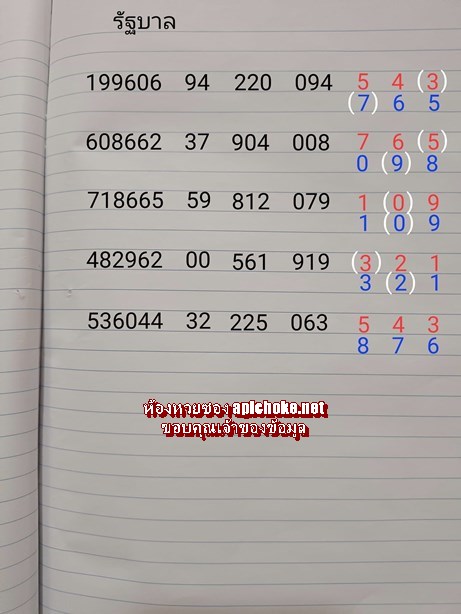 รัฐบาล
199606 94 220 094 5 4 (3)
(7) 6 5
608662 37 904 008 7 6 (5)
0 (9) 8
718665 59 812 079 1 (0) 9
1 (0) 9
482962 00 561 919 (3) 2 1
3 (2) 1
536044 32 225 063 5 4 3
8 7 6
ห้องหวยซอง apichoke.net
ขอบคุณเจ้าของข้อมูล